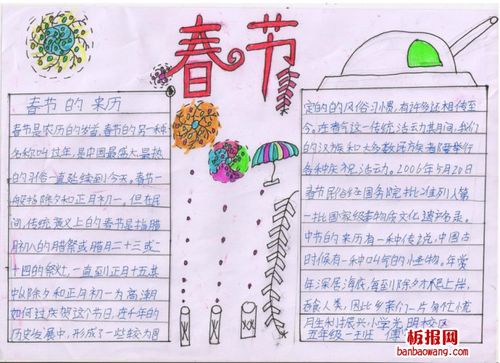 春节
春节的来历
春节是农历的岁首,春节的另一种
名称叫过年,是中国最盛大,最热
闹的
一直延续到今天,春节一
般指除夕和正月初一,但在民
间,传统意义上的春节是指腊
月初八的腊祭或腊月二十三或二
十四的祭灶,一直到正月十五,其
中以除夕和正月初一为高潮
如何过庆贺这个节日,在千年的
历史发展中,形成了一些较为固
定的的风俗习惯,有许多还相传至
今,在春节这一传统
活动其间,我们
的汉族和大多数民族都要举行
各种庆祝活动。2006年5月20日
春节民俗经国务院批准列入第
一批国家级非物质文化遗产名录。
春节的来历有一种传说,中国古
时候有一种叫"年"的怪物。年常
年深居海底,每到除夕才爬上岸,
吞食人类,因此乡亲们一片匆忙慌
小学光明校区
五年级一班
板报网
banbaowang.com